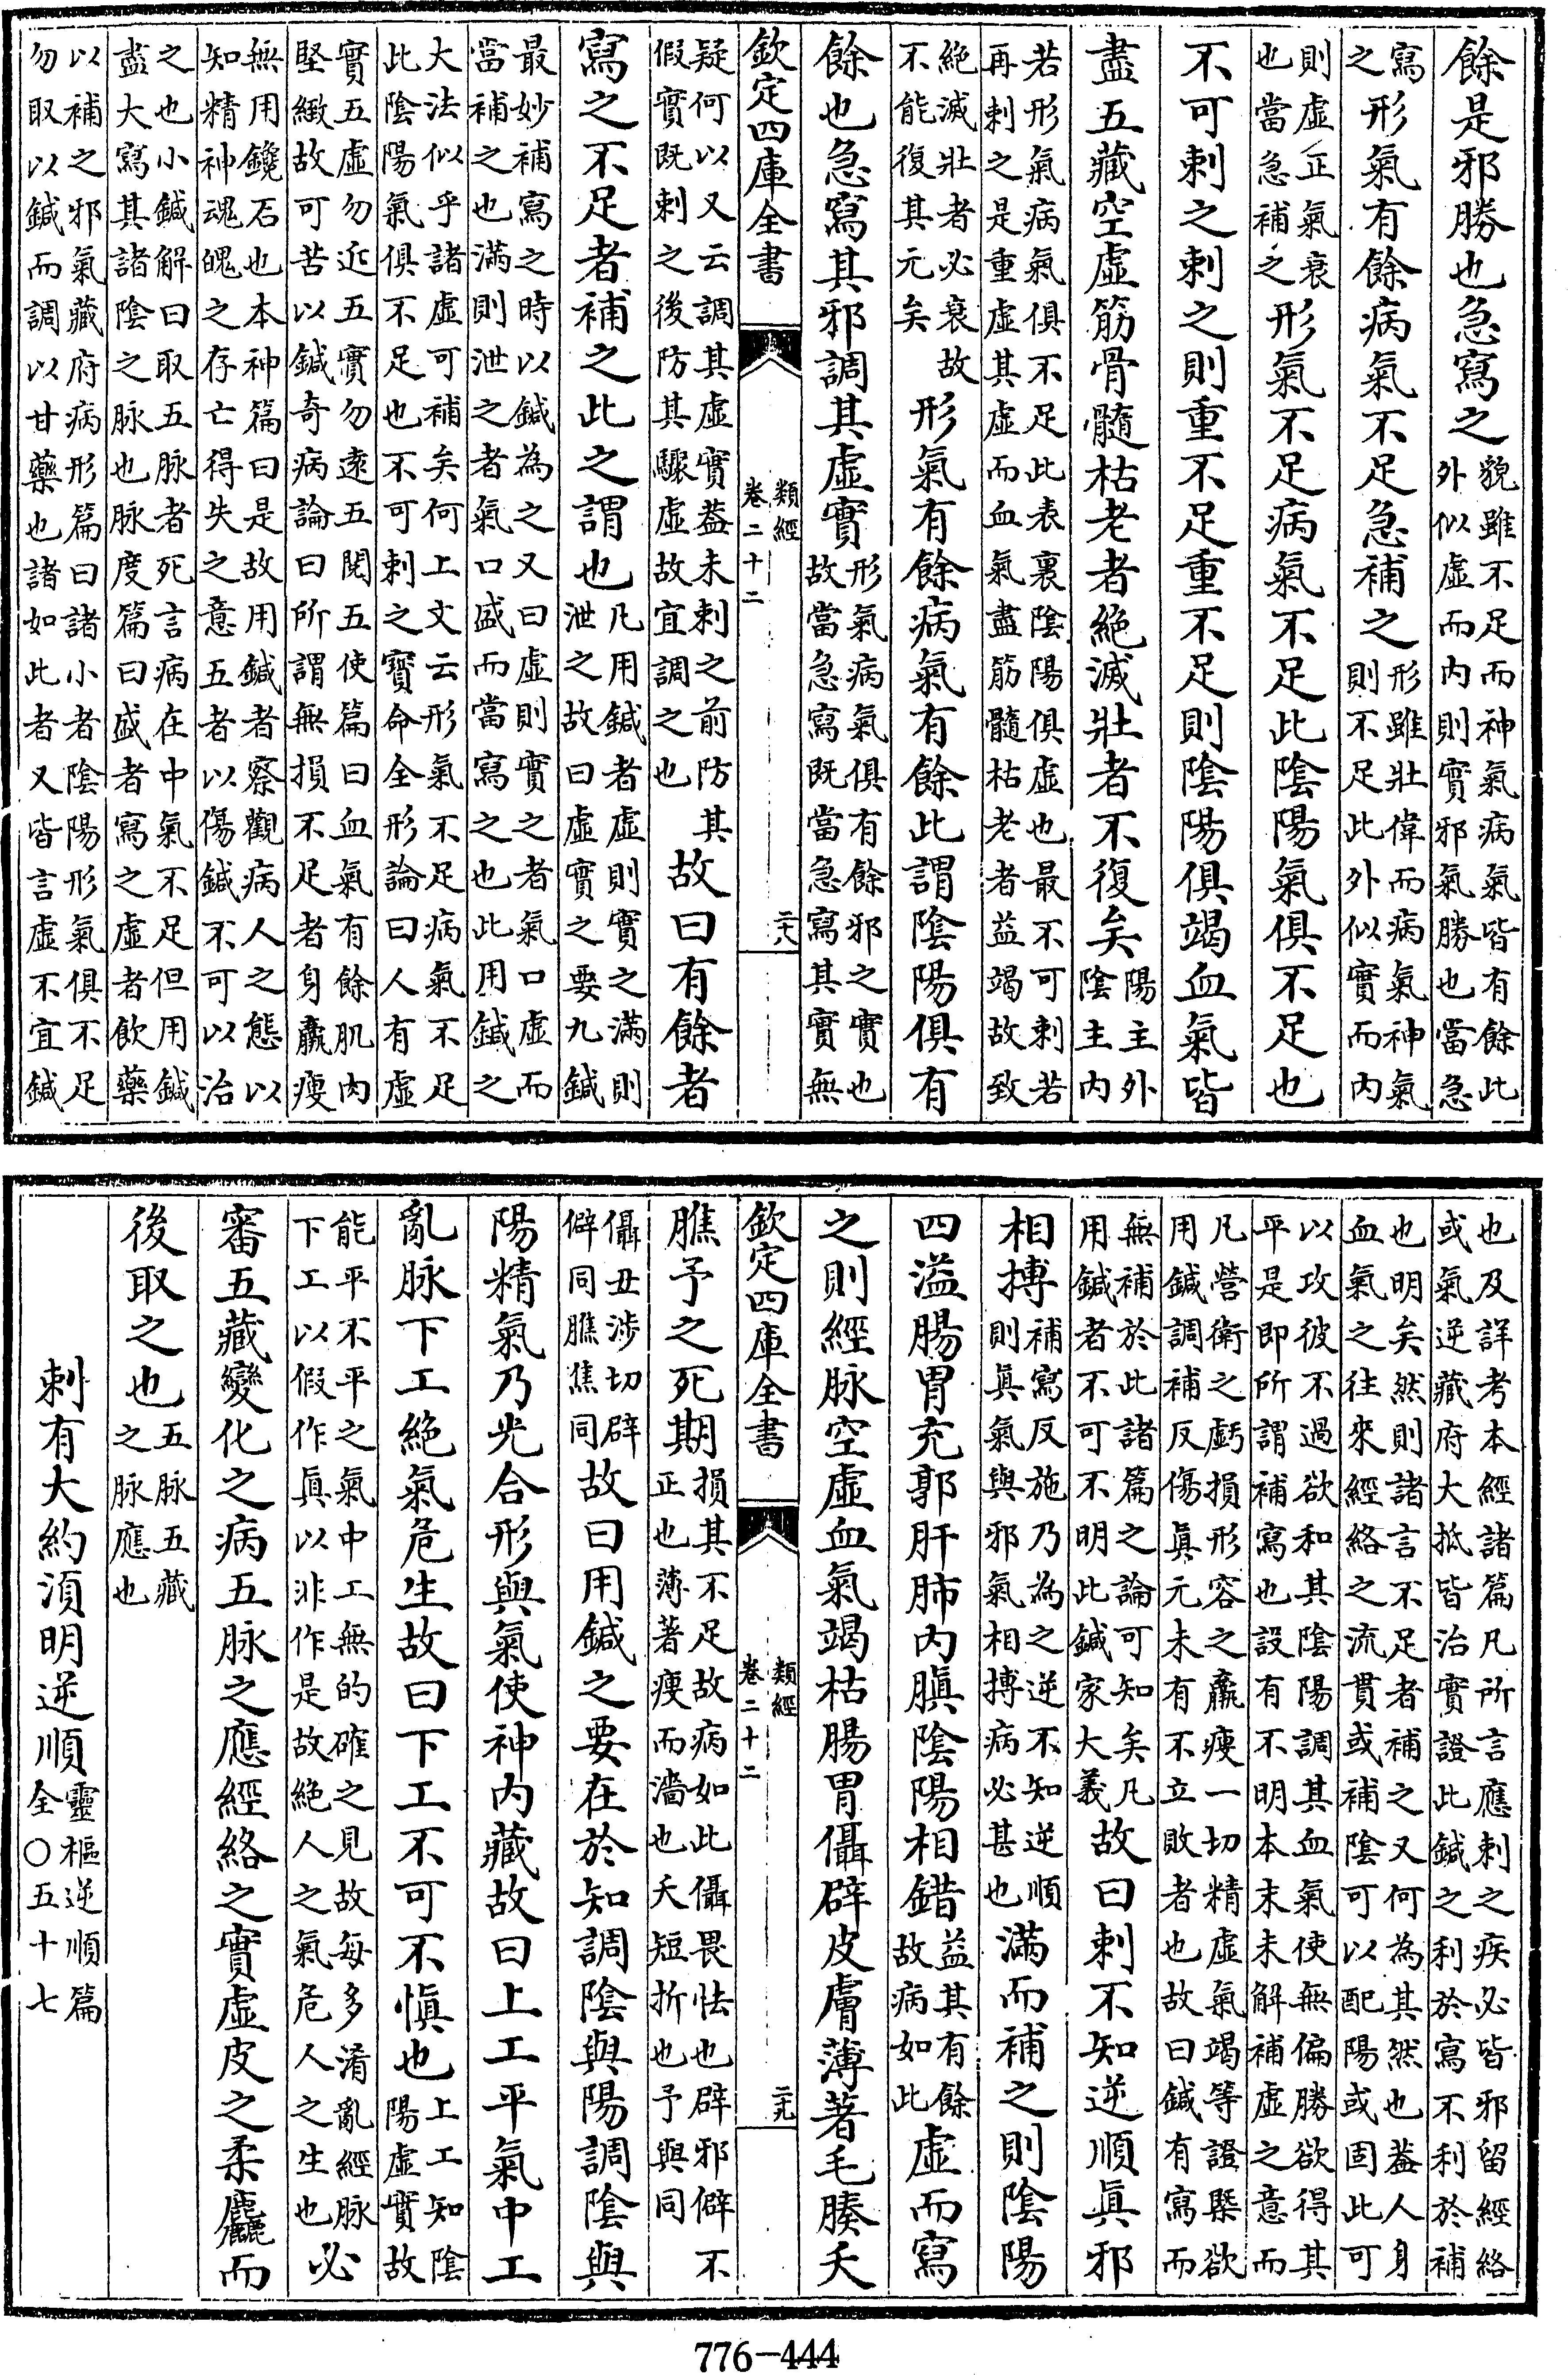 餘是邪勝也急寫之貌雖不足而神氣病氣皆有餘此外似虛而內則實邪氣勝也當急
寫之形氣有餘病氣不足急補之形雖壯偉而病氣神氣則不足此外似實而內
則虛正氣衰也當急補之形氣不足病氣不足此陰陽氣俱不足也
不可刺之刺之則重不足重不足則陰陽俱竭血氣皆
盡五藏空虛筋骨髓枯老者絕滅壯者不復矣陽主外陰主內
若形氣病氣俱不足此表裏陰陽俱虛也最不可刺若再刺之是重虛其虛而血氣盡筋髓枯老者益竭故致
絕滅壯者必衰故不能復其元矣形氣有餘病氣有餘此謂陰陽俱有
餘也急寫其邪調其虛實形氣病氣俱有餘邪之實也故當急寫既當急寫其實無
欽定四庫全書 類經 卷二十二 二十八
疑何以又云調其虛實葢未刺之前防其假實既刺之後防其驟虛故宜調之也故曰有餘者
寫之不足者補之此之謂也凡用鍼者虛則實之滿則泄之故曰虛實之要九鍼
最妙補寫之時以鍼為之又曰虛則實之者氣口虛而當補之也滿則泄之者氣口盛而當寫之也此用鍼之
大法似乎諸虛可補矣何上文云形氣不足病氣不足此陰陽氣俱不足也不可刺之寶命全形論曰人有虛
實五虛勿近五實勿遠五閱五使篇曰血氣有餘肌肉堅緻故可苦以鍼奇病論曰所謂無損不足者身羸瘦
無用鑱石也本神篇曰是故用鍼者察觀病人之態以知精神魂魄之存亡得失之意五者以傷鍼不可以治
之也小鍼解曰取五脉者死言病在中氣不足但用鍼盡大寫其諸陰之脉也脉度篇曰盛者寫之虛者飲藥
以補之邪氣藏府病形篇曰諸小者陰陽形氣俱不足勿取以鍼而調以甘藥也諸如此者又皆言虛不宜鍼
也及詳考本經諸篇凡所言應刺之疾必皆邪留經絡或氣逆藏府大抵皆治實證此鍼之利於寫不利於補
也明矣然則諸言不足者補之又何為其然也葢人身血氣之往來經絡之流貫或補陰可以配陽或固此可
以攻彼不過欲和其陰陽調其血氣使無偏勝欲得其平是即所謂補寫也設有不明本末未解補虛之意而
凡營衛之虧損形容之羸瘦一切精虛氣竭等證槩欲用鍼調補反傷眞元未有不立敗者也故曰鍼有寫而
無補於此諸篇之論可知矣凡用鍼者不可不明此鍼家大義故曰刺不知逆順眞邪
相搏補寫反施乃為之逆不知逆順則眞氣與邪氣相搏病必甚也滿而補之則陰陽
四溢腸胃充郭肝肺內䐜陰陽相錯益其有餘故病如此虛而寫
之則經脉空虛血氣竭枯腸胃㒤辟皮膚薄著毛腠夭
欽定四庫全書 類經 卷二十二 二十九
膲予之死期損其不足故病如此㒤畏怯也辟邪僻不正也薄著瘦而濇也夭短折也予與同
㒤丑涉切辟僻同膲焦同故曰用鍼之要在於知調陰與陽調陰與
陽精氣乃光合形與氣使神內藏故曰上工平氣中工
亂脉下工絕氣危生故曰下工不可不慎也上工知陰陽虛實故
能平不平之氣中工無的確之見故每多淆亂經脉下工以假作眞以非作是故絕人之氣危人之生也必
審五藏變化之病五脉之應經絡之實虛皮之柔麤而
後取之也五脉五藏之脉應也
刺有大約須明逆順靈樞逆順篇全○五十七
776-444